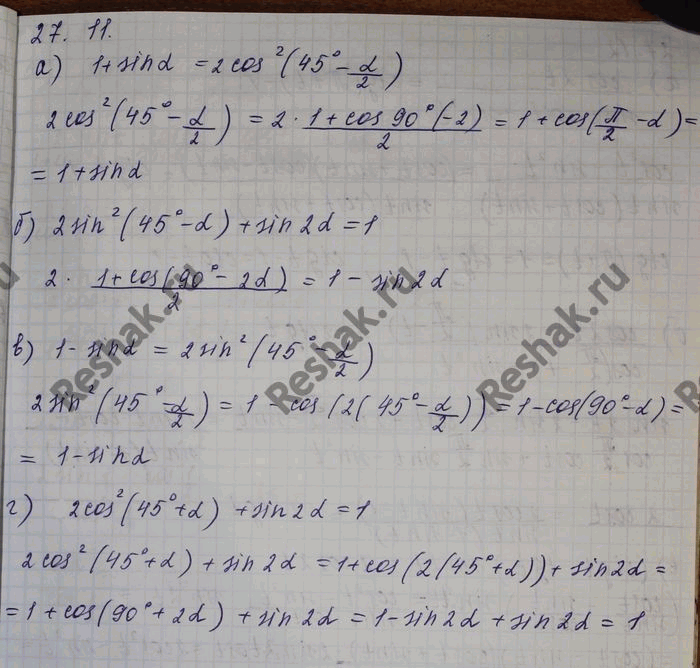 27. 11.
а) 1+sinα = 2cos²(45° - α/2)
2cos²(45° - α/2) = 2 · (1+cos 90°(-2))/2 = 1+cos(π/2 - α) =
= 1+sinα
б) 2sin²(45°-α) + sin2α = 1
2 · (1+cos(90° - 2α))/2 = 1 - sin2α
в) 1 - sinα = 2sin²(45° - α/2)
2sin²(45° - α/2) = 1 - cos(2(45° - α/2)) = 1 - cos(90° - α) =
= 1-sinα
г) 2cos²(45°+α) + sin2α = 1
2cos²(45°+α) + sin2α = 1+cos(2(45°+α)) + sin2α =
= 1+cos(90°+2α) + sin2α = 1-sin2α + sin2α = 1
Reshak.ru
Reshak.ru